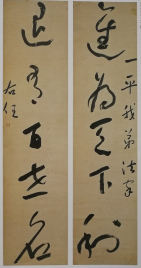 一平我弟法家
進為天下利
退有百世名
右任